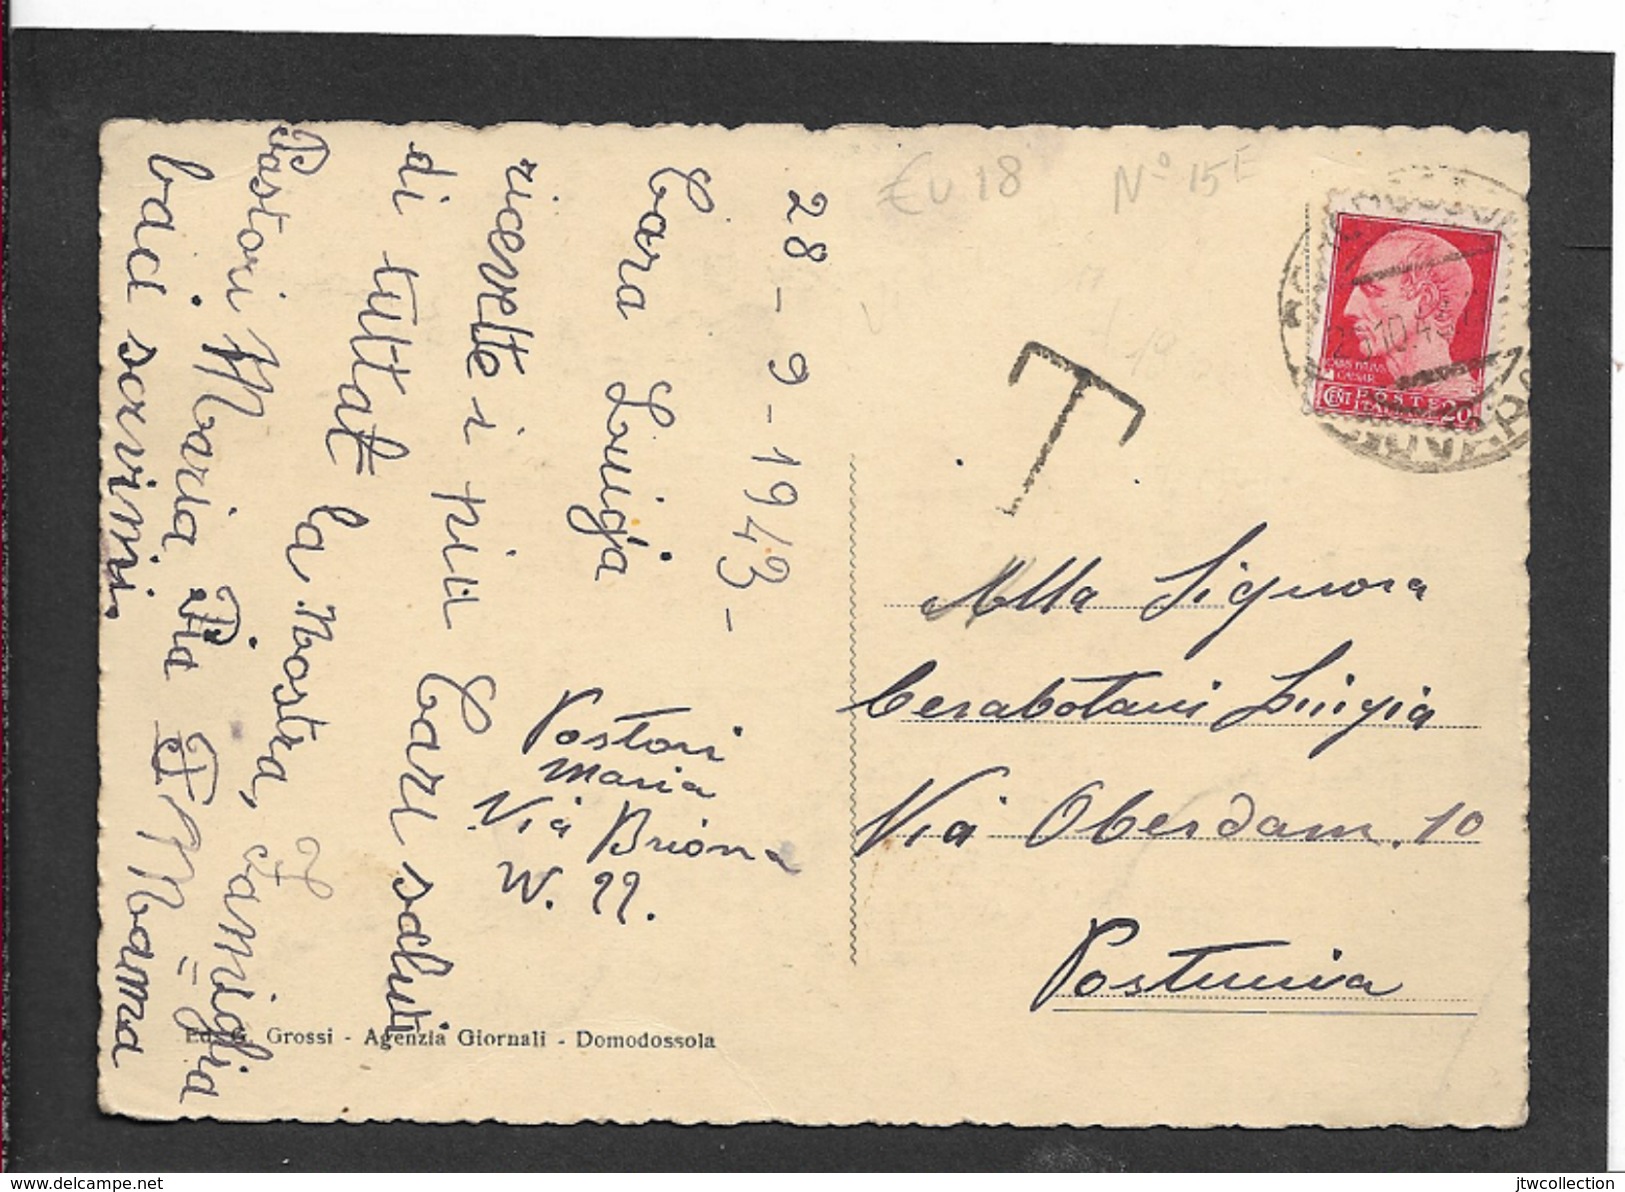 28-9-1943-
Cara Luigia
ricevette i piu Cari saluti
di tuttat la Nostra, Famiglia
Pastori Maria Pia = Mamma
baci scrivimi.
Pastori
Maria
Via Briona
N. 22.
€U 18
N° 15E
T
CENT 20
POSTE
ITALIANE
Alla Signora
Cerabotani Luigia
Via Oberdam. 10
Postumia
Ed. G. Grossi - Agenzia Giornali - Domodossola
delcampe.net
jtwcollection